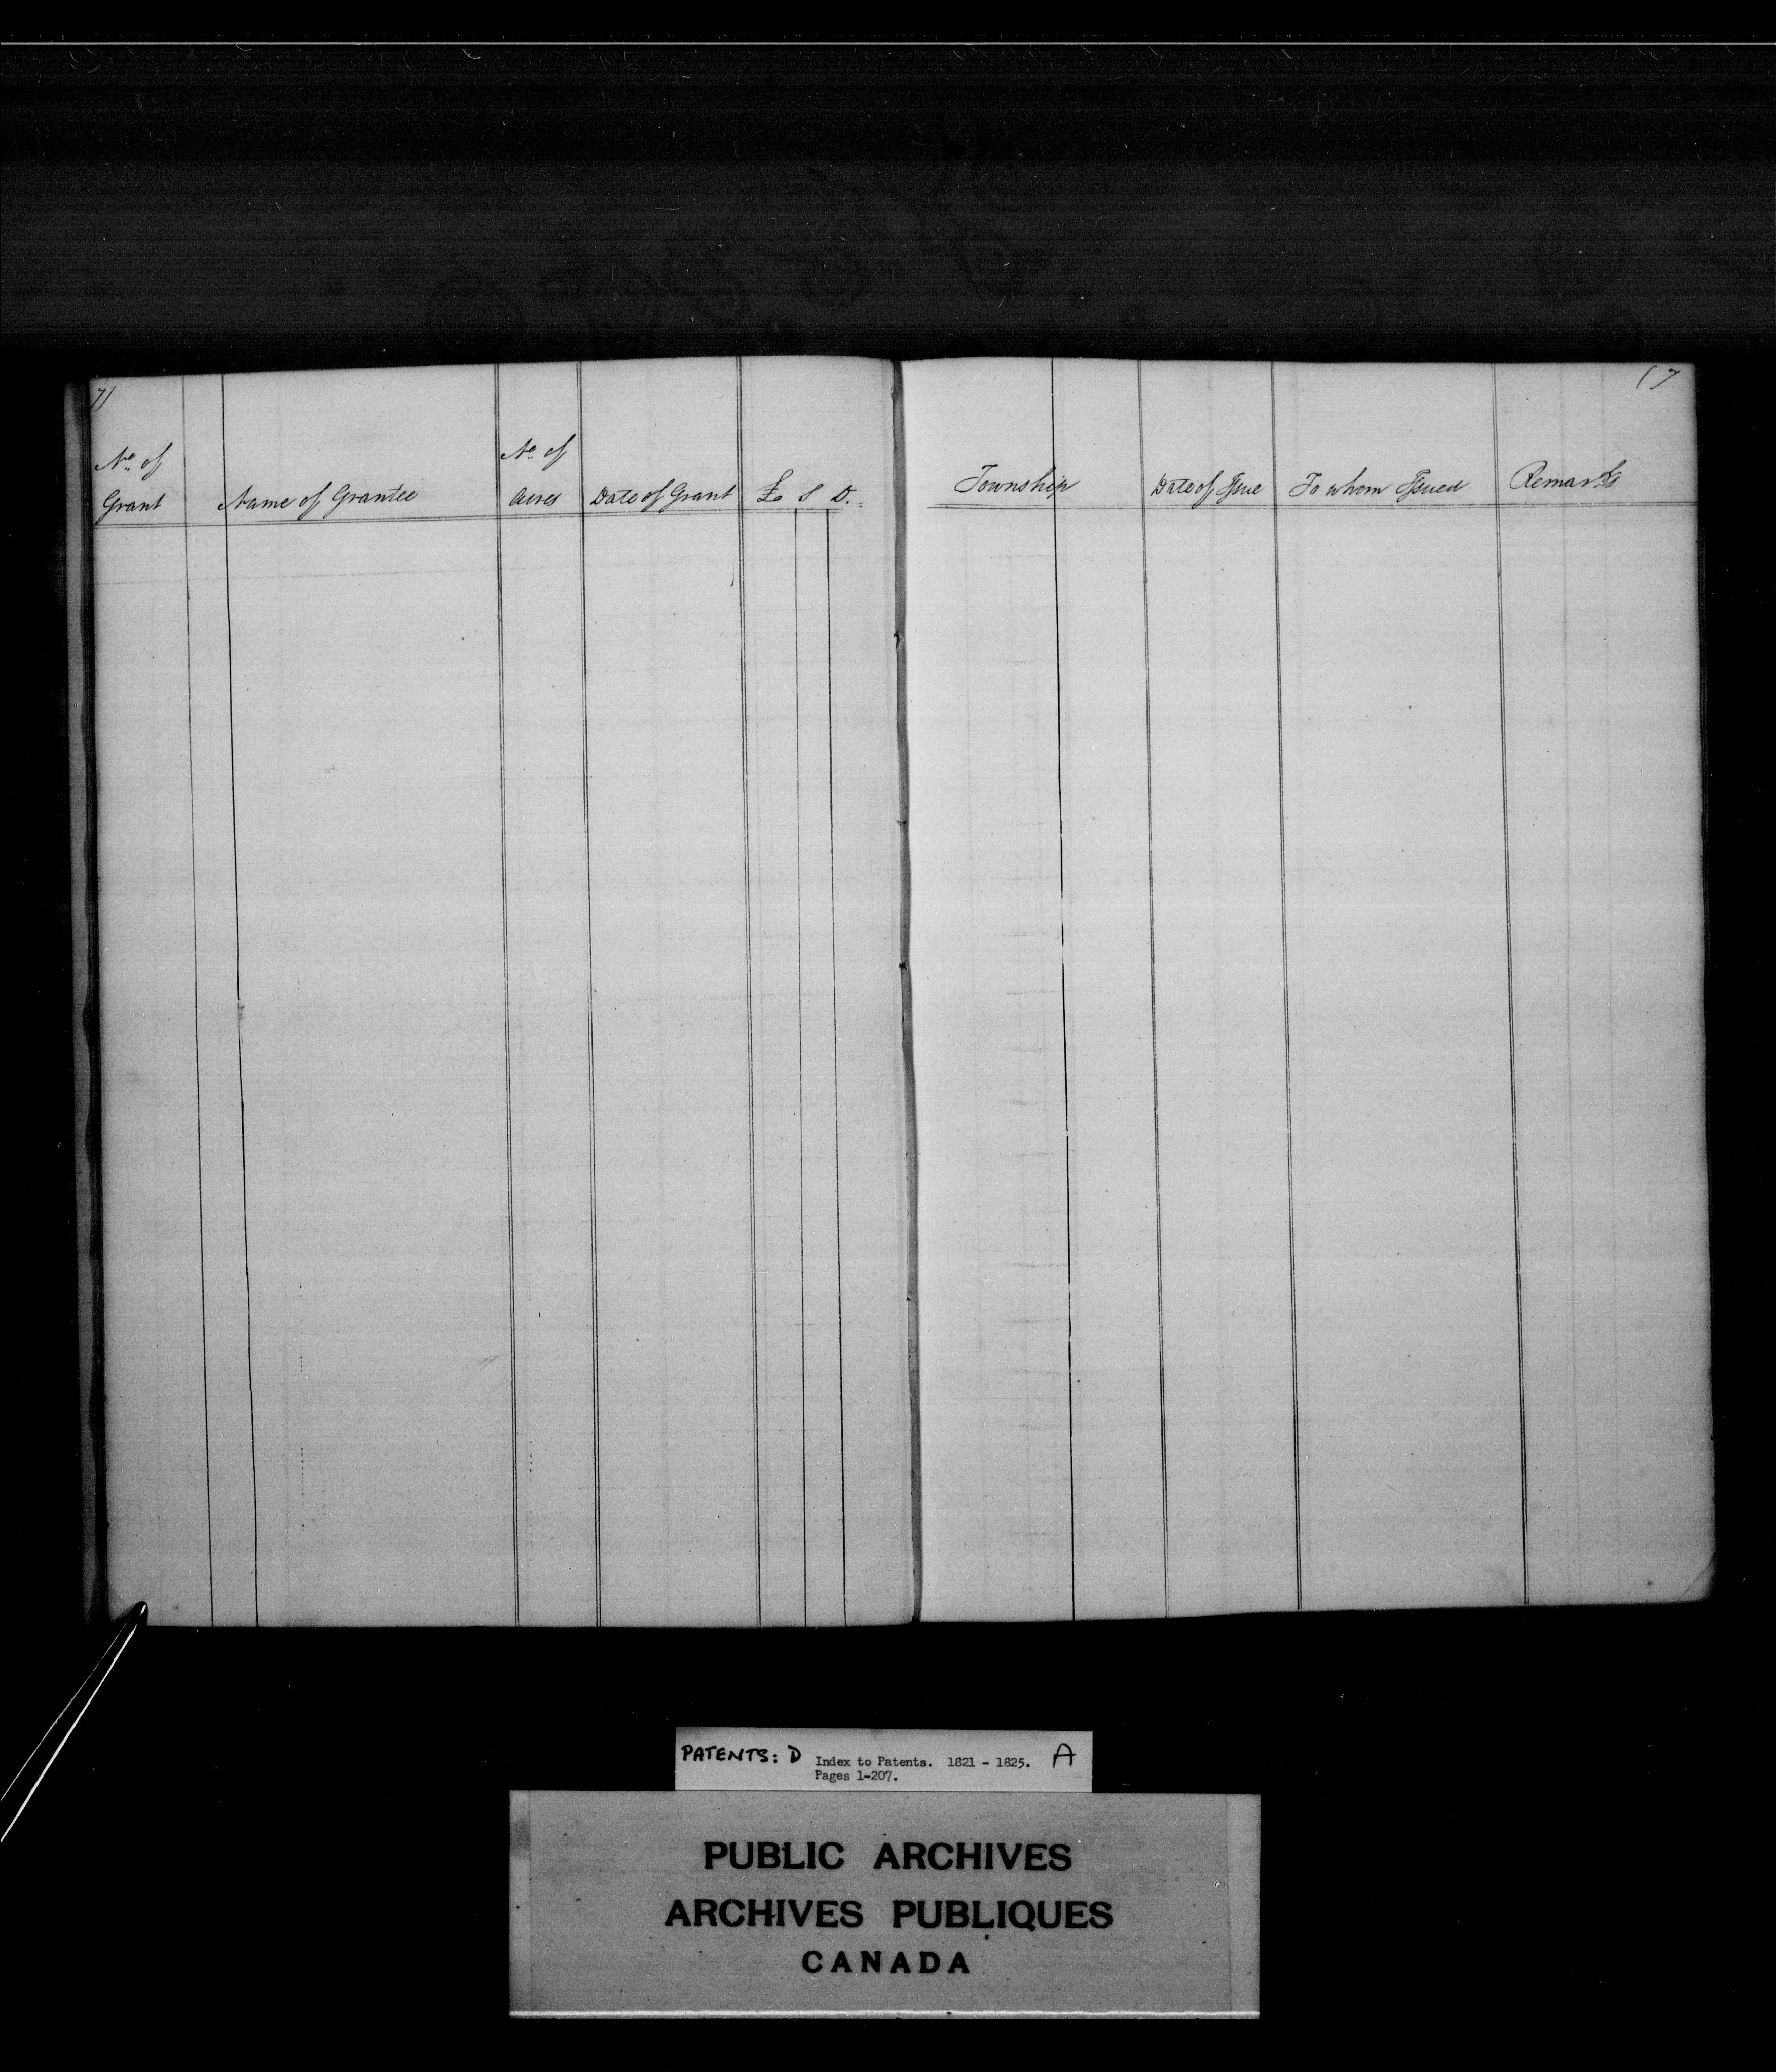 7)
No. of
Grant
Name of Grantee
No. of
Acres
Date of Grant
£ S D.
(7
Township
Date of Issue
To whom Issued
Remarks
PATENTS: D Index to Patents. 1821 - 1825. A
Pages 1-207.
PUBLIC ARCHIVES
ARCHIVES PUBLIQUES
CANADA